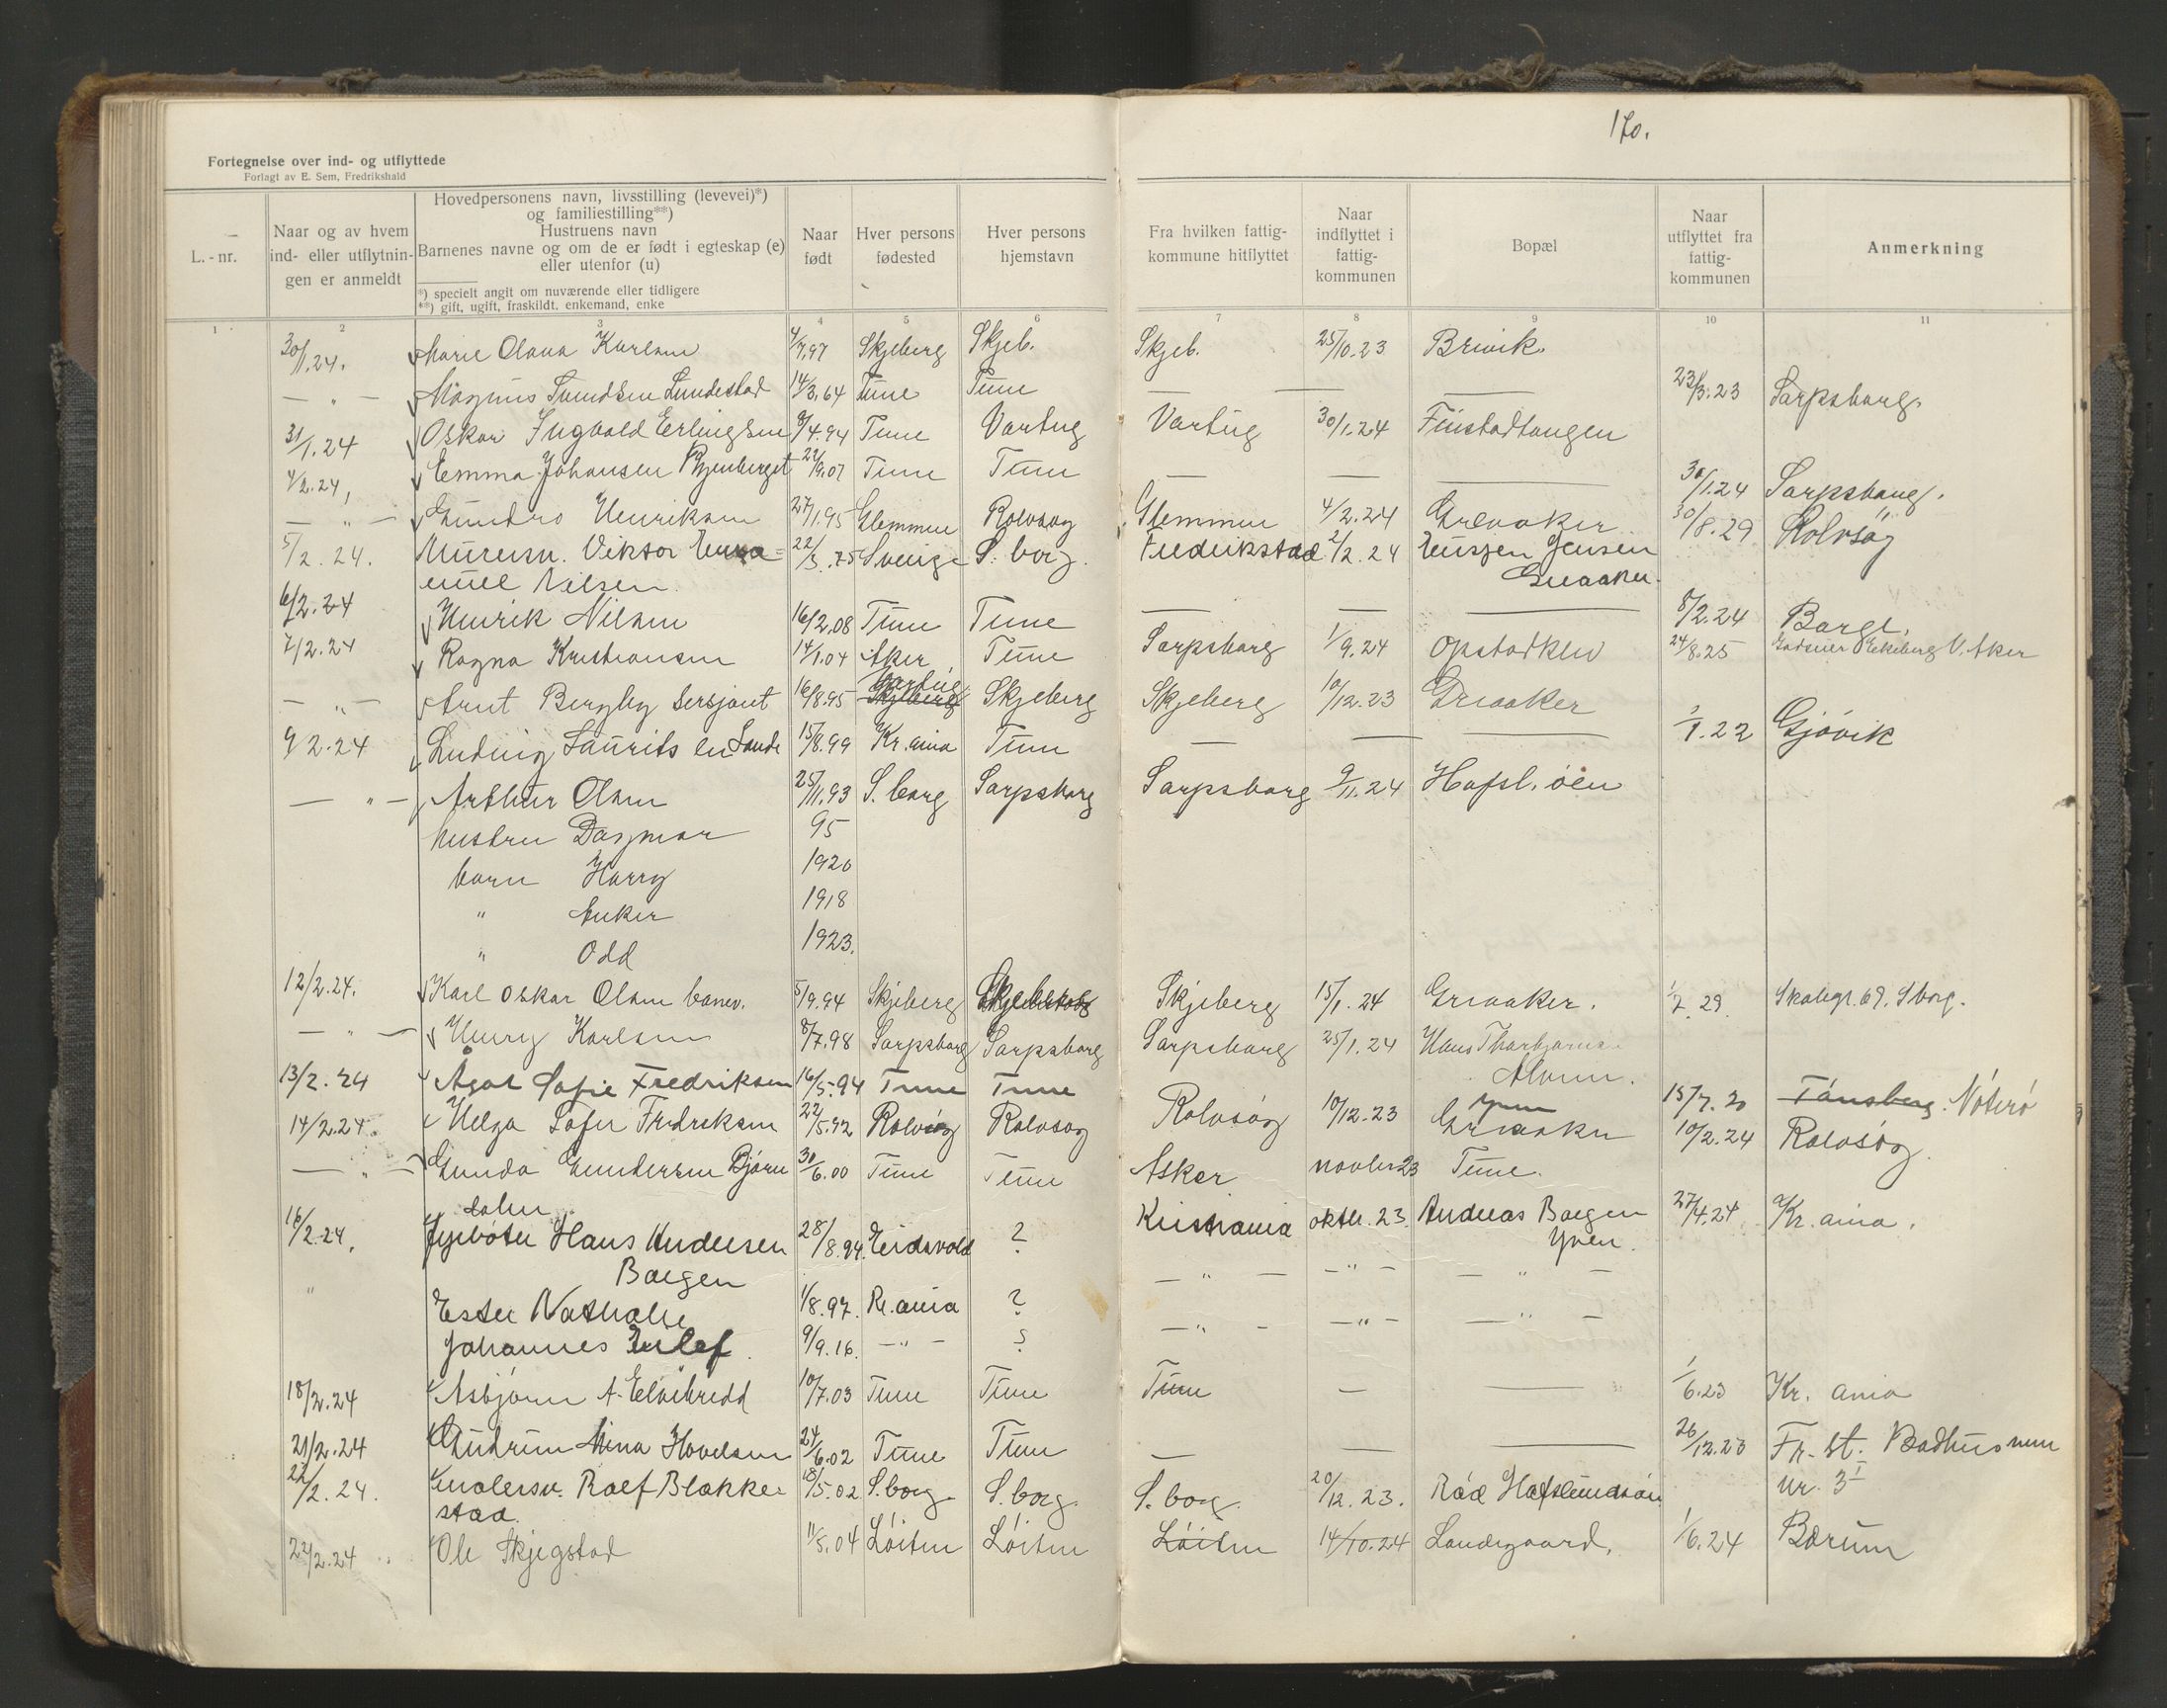 170.
Fortegnelse over ind- og utflyttede
Forlagt av E. Sem, Fredrikshald
L.-nr.
Naar og av hvem
ind- eller utflytnin-
gen er anmeldt
Hovedpersonens navn, livsstilling (levevei)*)
og familiestilling**)
Hustruens navn
Barnenes navne og om de er født i egteskap (e)
eller utenfor (u)
*) specielt angit om nuværende eller tidligere
**) gift, ugift, fraskildt, enkemand, enke
Naar
født
Hver persons
fødested
Hver persons
hjemstavn
Fra hvilken fattig-
kommune hitflyttet
Naar
indflyttet i
fattig-
kommunen
Bopæl
Naar
utflyttet fra
fattig-
kommunen
Anmerkning
1 2 3 4 5 6 7 8 9 10 11
30/1.24. Marie Olava Karlsen 4/7.97 Skjeberg Skjeb. Skjeb. 25/10.23 Brevik.
— " — Magnus Lundestad 14/3.64 Tune Tune — — — 23/3.23 Sarpsborg.
31/1.24 Oskar Ingvald Erlingsen 8/4.94 Tune Varteig Varteig 30/1.24 Finstadtangen
4/2.24, Emma Johansen 22/9.07 Tune Tune — — — 30/1.24 Sarpsborg.
— " — Henriksen 27/1.95 Glemmen Rolvsøy Glemmen 4/2.24 Greaaker 30/8.29 Rolvsøy
5/2.24. Murersv. Viktor 22/3.75 Sverige S. borg. Fredrikstad 2/2.24 Jensen
Nilsen. Greaaker.
6/2.24 Henrik Nilsen 16/2.08 Tune Tune — — — 8/2.24 Borge.
7/2.24 Ragna Kristiansen 14/1.04 Aker Tune Sarpsborg 1/9.24 Opstadklev 24/8.25 Ekeberg V. Aker
Varteig
— " — Arnt Bergby sersjant 16/8.95 Skjeberg Skjeberg Skjeberg 10/12.23 Greaaker
9 2.24 Ludvig Laurits Sande 15/8.99 Kr.ania Tune — — — 1/1.22 Gjøvik
— " — Arthur Olsen 25/11.93 S. borg Sarpsborg Sarpsborg 9/11.24 Hafsl. øen
hustru Dagmar 95
barn Harry 1920
" Anker 1918
" Odd 1923.
12/2.24. Karl Oskar Olsen banev. 5/9.94 Skjeberg Skjeberg 15/1.24 Greaaker. 1/7.29 Skolegt. 69. Sborg.
— " — Henry Karlsen 8/7.98 Sarpsborg Sarpsborg Sarpsborg 25/1.24 Hans
Alvim.
13/2.24 Ågot Sofie Fredriksen 16/5.94 Tune Tune Yven 15/7.20 Tønsberg. Nøterø
14/2.24. Helga Sofie Fredriksen 22/5.92 Rolvsøy Rolvsøy Rolvsøy 10/12.23 Greaaker 10/2.24 Rolvsøy.
— " — Gunda Gundersen Bjørn 30/6.00 Tune Tune Asker novbr 23 Tune.
dalen
16/2.24. Fyrbøter Hans Andersen 28/8.94. Eidsvold ? Kristiania oktb. 23. Andreas Bøgen 27/4.24 Kr. ania.
Bøgen Yven.
" Ester Nathalie 1/8.97. Kr. ania ? — " — — " — — " —
Johannes 9/9.16. — " — ? — " — — " — — " —
18/2.24 Asbjørn A. Elvebredd 10/7.03 Tune Tune Tune — — 1/6.23 Kr. ania
21/2.24 Gudrun Mina Hovelsen 24/6.02 Tune Tune — — — 26/12.23 Fr.st.
nr. 3
22/2.24. Rolf Blakke 18/5.02 S.borg. S.borg. S. borg. 20/12.23. Råd Hafslundsøen
stad.
22/2.24 Ole Skjegstad 11/5.04 Løiten Løiten Løiten 14/10.24 Landegaard. 1/6.24 Bærum